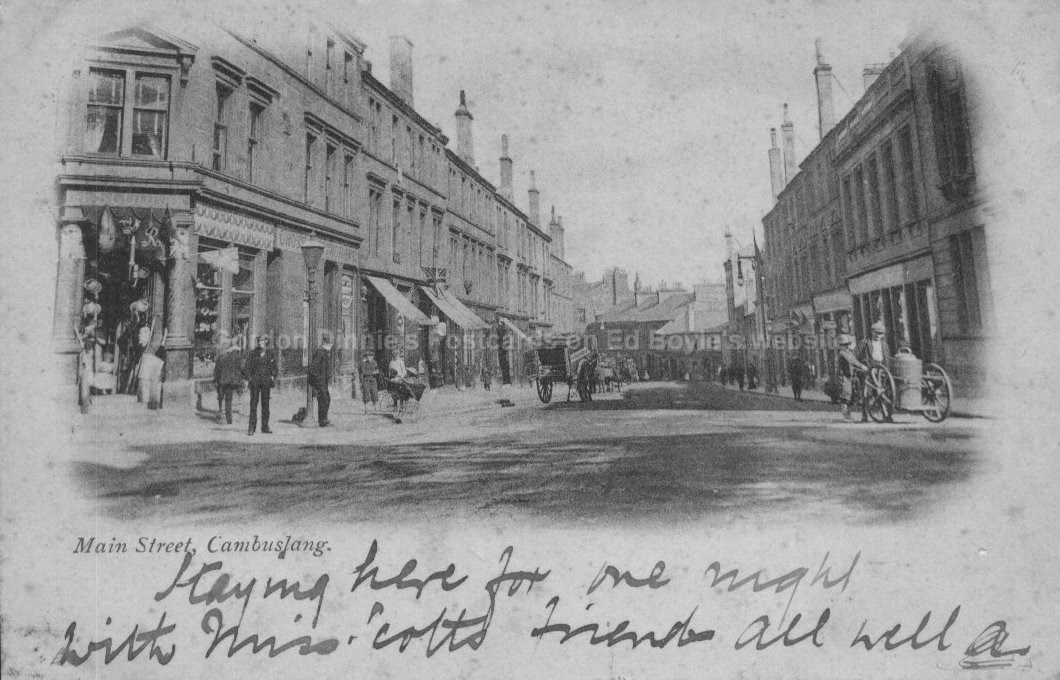 Gordon Dinnie's Postcards on Ed Boyle's Website
Main Street, Cambuslang.
Staying here for one night
with Miss friends all well a